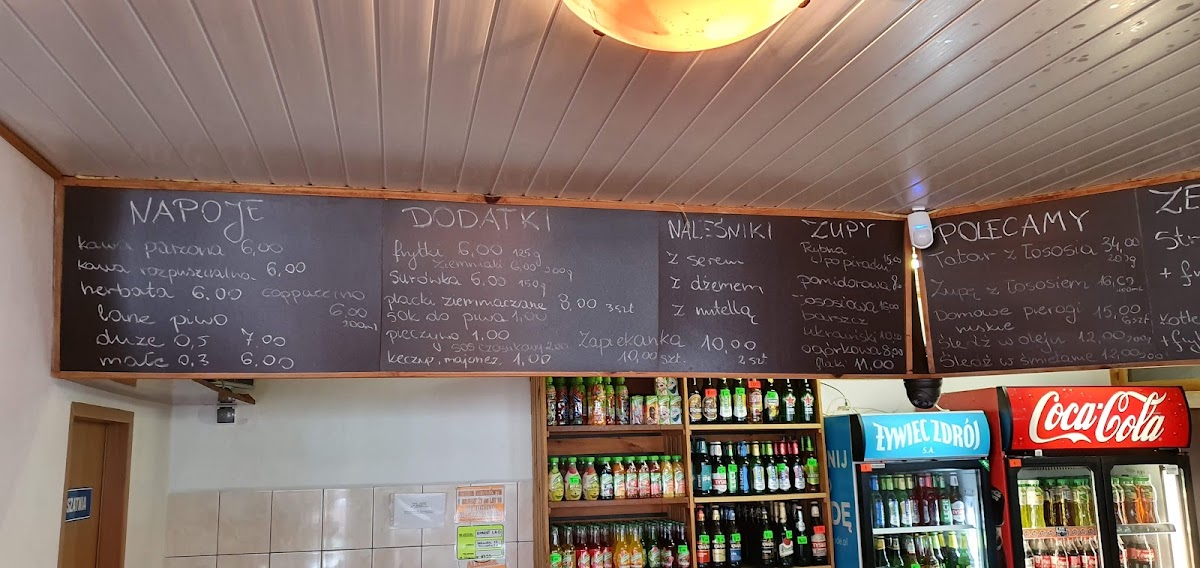 NAPOJE
kawa parzona 6,00
kawa rozpuszczalna 6,00
herbata 6,00 cappuccino 6,00 200ml
lane piwo
duże 0,5 7,00
małe 0,3 6,00
DODATKI
frytki 6,00 125g
ziemniaki 6,00 200g
surówka 6,00 150g
placki ziemniaczane 8,00 3szt
sok do piwa 1,00
pieczywo 1,00
sos czosnkowy 2,00
keczup, majonez 1,00
Zapiekanka
10,00 szt.
NALEŚNIKI
z serem
z dżemem
z nutellą
10,00
2szt
ZUPY
Rybna
pomidorowa
łososiowa 15,00
barszcz
ukraiński
ogórkowa
flaki 11,00
POLECAMY
Tatar z łososia 34,00
Zupa z łososiem
Domowe pierogi 15,00
ruskie 6szt
śledź w oleju 12,00
śledź w śmietanie 12,00
+ f
SZATNIA
ŻYWIEC ZDRÓJ
S.A.
Coca-Cola